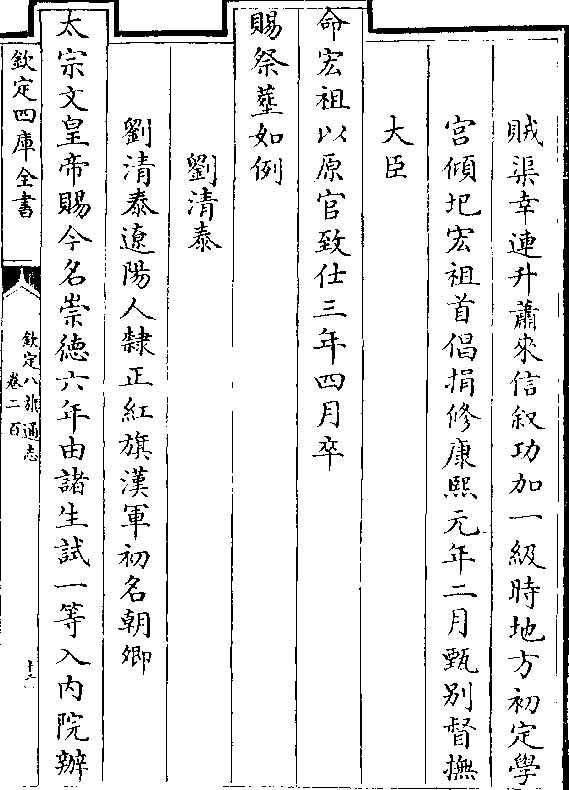 賊渠幸連升蕭來信叙功加一級時地方初定學
宮傾圮宏祖首倡捐修康熙元年二月甄別督撫
大臣
命宏祖以原官致仕三年四月卒
賜祭塟如例
劉清泰
劉清泰遼陽人隸正紅旗漢軍初名朝卿
太宗文皇帝賜今名崇德六年由諸生試一等入內院辦
欽定四庫全書
欽定八旗通志
卷二百
十二